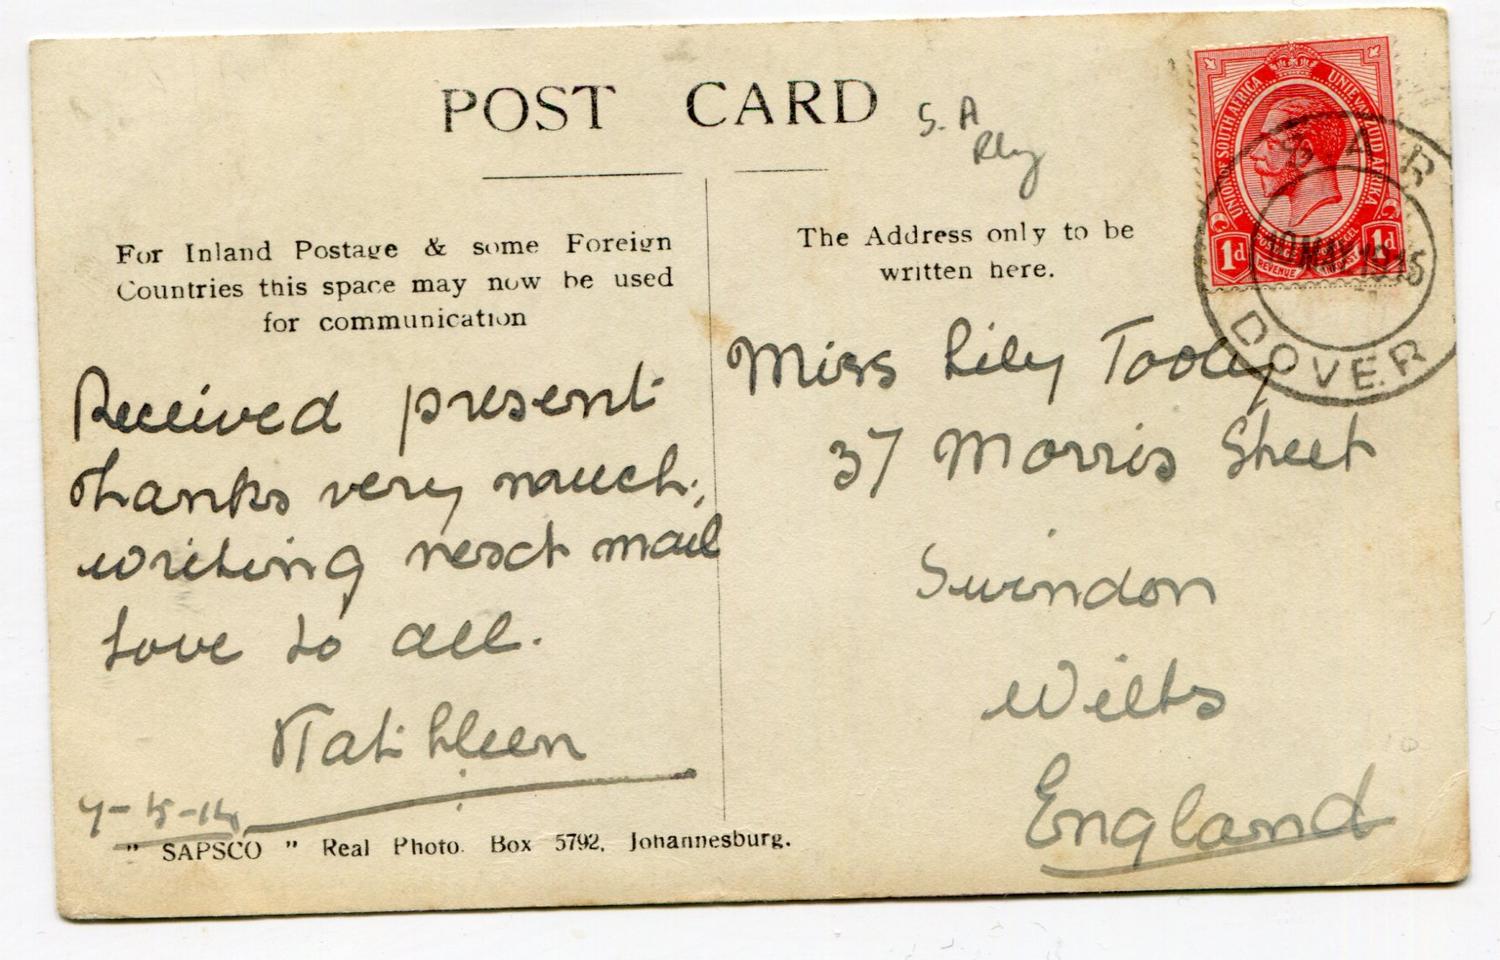 POST CARD
S. A
Rly
UNION OF SOUTH AFRICA
UNIE VAN ZUID AFRIKA
1d
POSTAGE
REVENUE
1d
S A R
10 MAY 1915
DOVER
For Inland Postage & some Foreign
Countries this space may now be used
for communication
The Address only to be
written here.
Received present
thanks very much,
writing next mail
Love to all.
Kathleen
"SAPSCO" Real Photo. Box 5792, Johannesburg.
Miss Lily Tooley
37 Morris Street
Swindon
Wilts
England